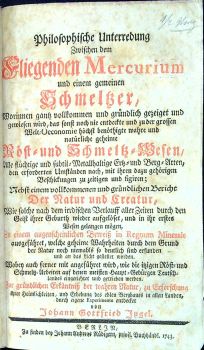 Philosophische Unterredung
Zwischen dem
Fliegenden Mercurium
und einem gemeinen
Schmeltzer,
Worinnen gantz vollkommen und gründlich gezeiget und
gewiesen wird, das sonst noch nie entdeckte und zu der grossen
Welt-Oeconomie höchst benöthigte wahre und
natürliche geheime
Röst- und Schmeltz-Wesen,
Alle flüchtige und subtil-Metallhaltige Ertz- und Berg-Arten,
den erforderten Umständen nach, mit ihren dazu gehörigen
Beschickungen zu zeitigen und figiren;
Nebst einem vollkommenen und gründlichen Bericht
Der Natur und Creatur,
Wie solche nach dem irrdischen Verlauff aller Zeiten durch den
Geist ihrer Gebuhrt wieder aufgelöset, und in ihr erstes
Wesen gelangen mögen,
Zu einem augenscheinlichen Beweiß in Regnum Minerale
ausgeführet, welche geheime Wahrheiten durch den Grund
der Natur noch niemahls so deutlich sind erfunden
und an das Licht gestellet worden.
Wobey auch ferner mit angeführet wird, wie die itzigen Röst- und
Schmeltz-Arbeiten auf denen meisten Haupt-Gebürgen Teutsch-
landes eingerichtet und getrieben werden.
Zur gründlichen Erkäntniß der wahren Natur, zu Erforschung
ihrer Heimlichkeiten, und Erhebung des edlen Bergbaues in allen Landen,
durch eigene Experimenta entdecket
von
Johann Gottfried Jugel.
BERLIN,
Zu finden bey Johann Andreas Rüdigern, privil. Buchhändl. 1743.